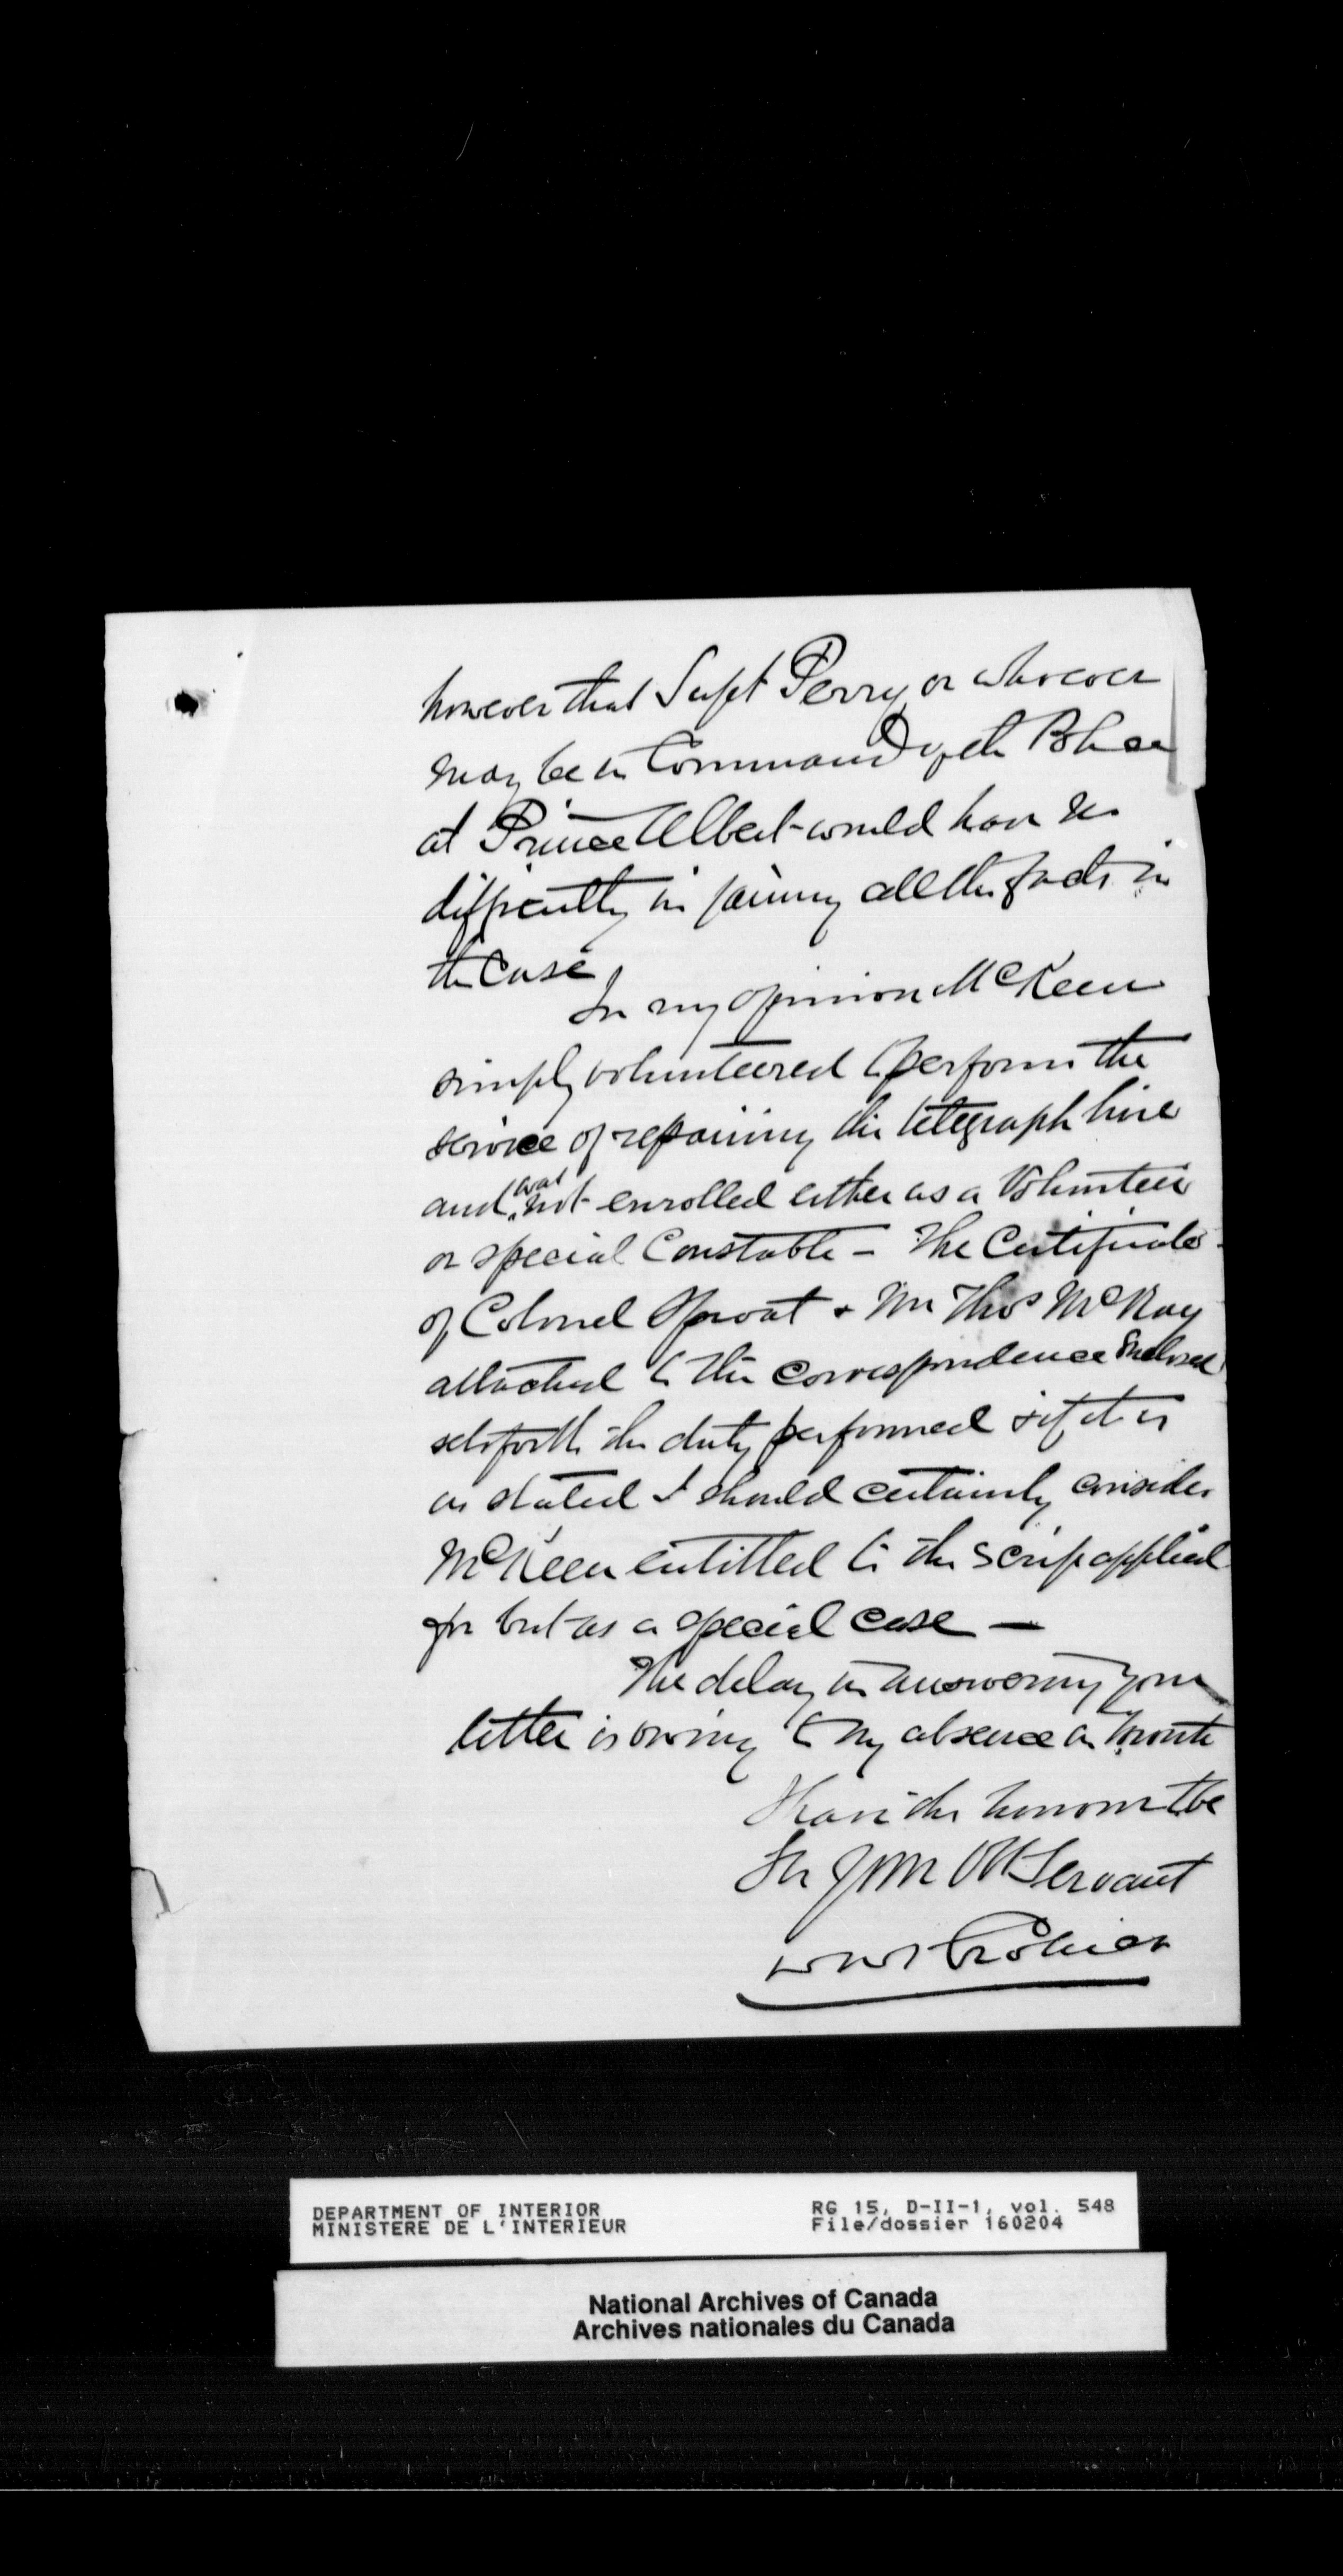 however that Supt Perry or whoever
may be in Command of the Police
at Prince Albert would have no
difficulty in gaining all the facts in
the Case
In my opinion McKeen
simply volunteered to perform the
service of repairing the telegraph line
and was not enrolled either as a Volunteer
or special Constable - The Certificates
of Colonel Sproat & Mr Thos McKay
attached to the correspondence enclosed
sets forth the duty performed & if it is
as stated I should certainly consider
McKeen entitled to the scrip applied
for but as a special case —
The delay in answering your
letter is owing to my absence in Toronto
I have the honour to be
Sir Your Obt Servant
DEPARTMENT OF INTERIOR
MINISTERE DE L'INTERIEUR
RG 15, D-II-1, vol. 548
File/dossier 160204
National Archives of Canada
Archives nationales du Canada